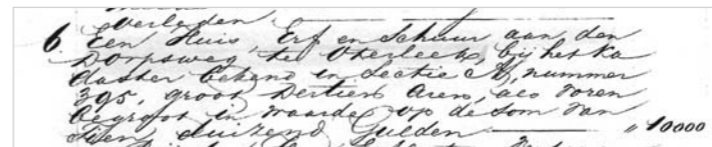 Verleden
6. Een Huis, Erf en Schuur aan den
Dorpsweg te Oterleek, bij het Ka
daster bekend in Sectie A, nummer
395, groot Dertien Aren, als voren
begroot in waarde op de som van
Tien duizend Gulden " 10000